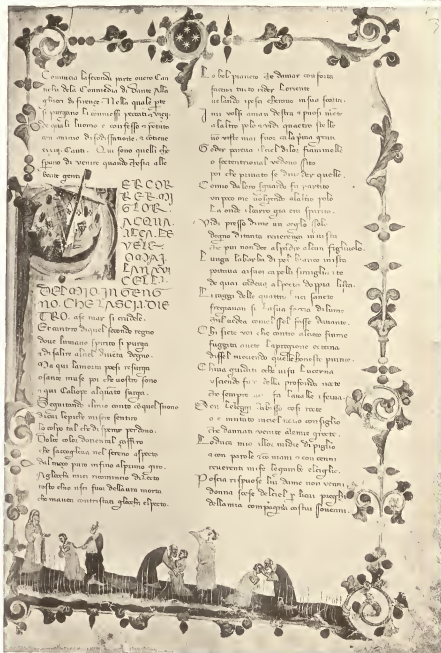 Comincia la seconda parte overo Can
tica dela Commedia di Dante Alla
ghieri di firence Nella quale pte
si purgano li commessi peccati & vicij
De quali luomo e confesso & pentuto
con animo di sodisfatione & contiene
xxxiij. Canti. Qui sono quelli che
sperano di venire quando che sia alle
beate genti.
ER COR
RER MI
GLOR.
ACQUA
ALCA LE
VELE
OMAI
LA NAVI
CELLA
DEL MIO INGENG
NO. CHE LASCIA DIE
TRO. ase mar si crudele.
E cantero di quel secondo regno
dove lumano spirito si purga
& di salire al ciel diventa degno.
Ma qui la morta poesi resurga
o sante muse poi che vostro sono
& qui Caliope alquanto surga.
Seguitando il mio canto con quel suono
di cui le piche misere sentiro
lo colpo tal che disperar perdono.
Dolce color doriental zaffiro
che saccoglea nel sereno aspecto
dal mezo puro infino al primo giro.
Agliocchi miei ricomincio dilecto
tosto chio usci fuor dellaura morta
che mavea contristati gliocchi el pecto.
Lo bel pianeto che damar conforta
faceva tutto rider loriente
velando i pesci cherano in sua scorta.
I mi volsi aman destra & puosi mente
alaltro polo & vidi quattro stelle
non viste mai fuor cala prima gente.
Goder pareva il ciel di lor fiammelle
o septentrional vedovo sito
poi che privato se di veder quelle.
Comio da loro sguardo fui partito
un poco me volgendo alaltro polo
la onde il carro gia era sparito.
Vidi presso di me un veglio solo
degno di tanta reverenza in vista
che piu non dee al padre alcun figliuolo.
Lunga la barba & di pel bianco mista
portava a suoi capelli simigliante
de quai cadeva al pecto doppia lista.
Li raggi delle quattro luci sancte
fregiavan si la sua faccia di lume
chil vedea come l sol fusse davante.
Chi siete voi che contro al cieco fiume
fuggita avete la pregione ecterna
dissel movendo quelle honeste piume.
Chi va guidati o che vi fu lucerna
uscendo fuor della profonda nocte
che sempre nera fa la valle inferna.
Son le leggi dabisso cosi rotte
o e mutato in ciel novo consiglio
che dannati venite ale mie grotte.
Lo duca mio allor mi die di piglio
& con parole & con mani & con cenni
reverenti mi fe le gambe el ciglio.
Poscia rispuose lui da me non venni
donna scese del ciel per li cui prieghi
della mia compagnia costui sovvenni.